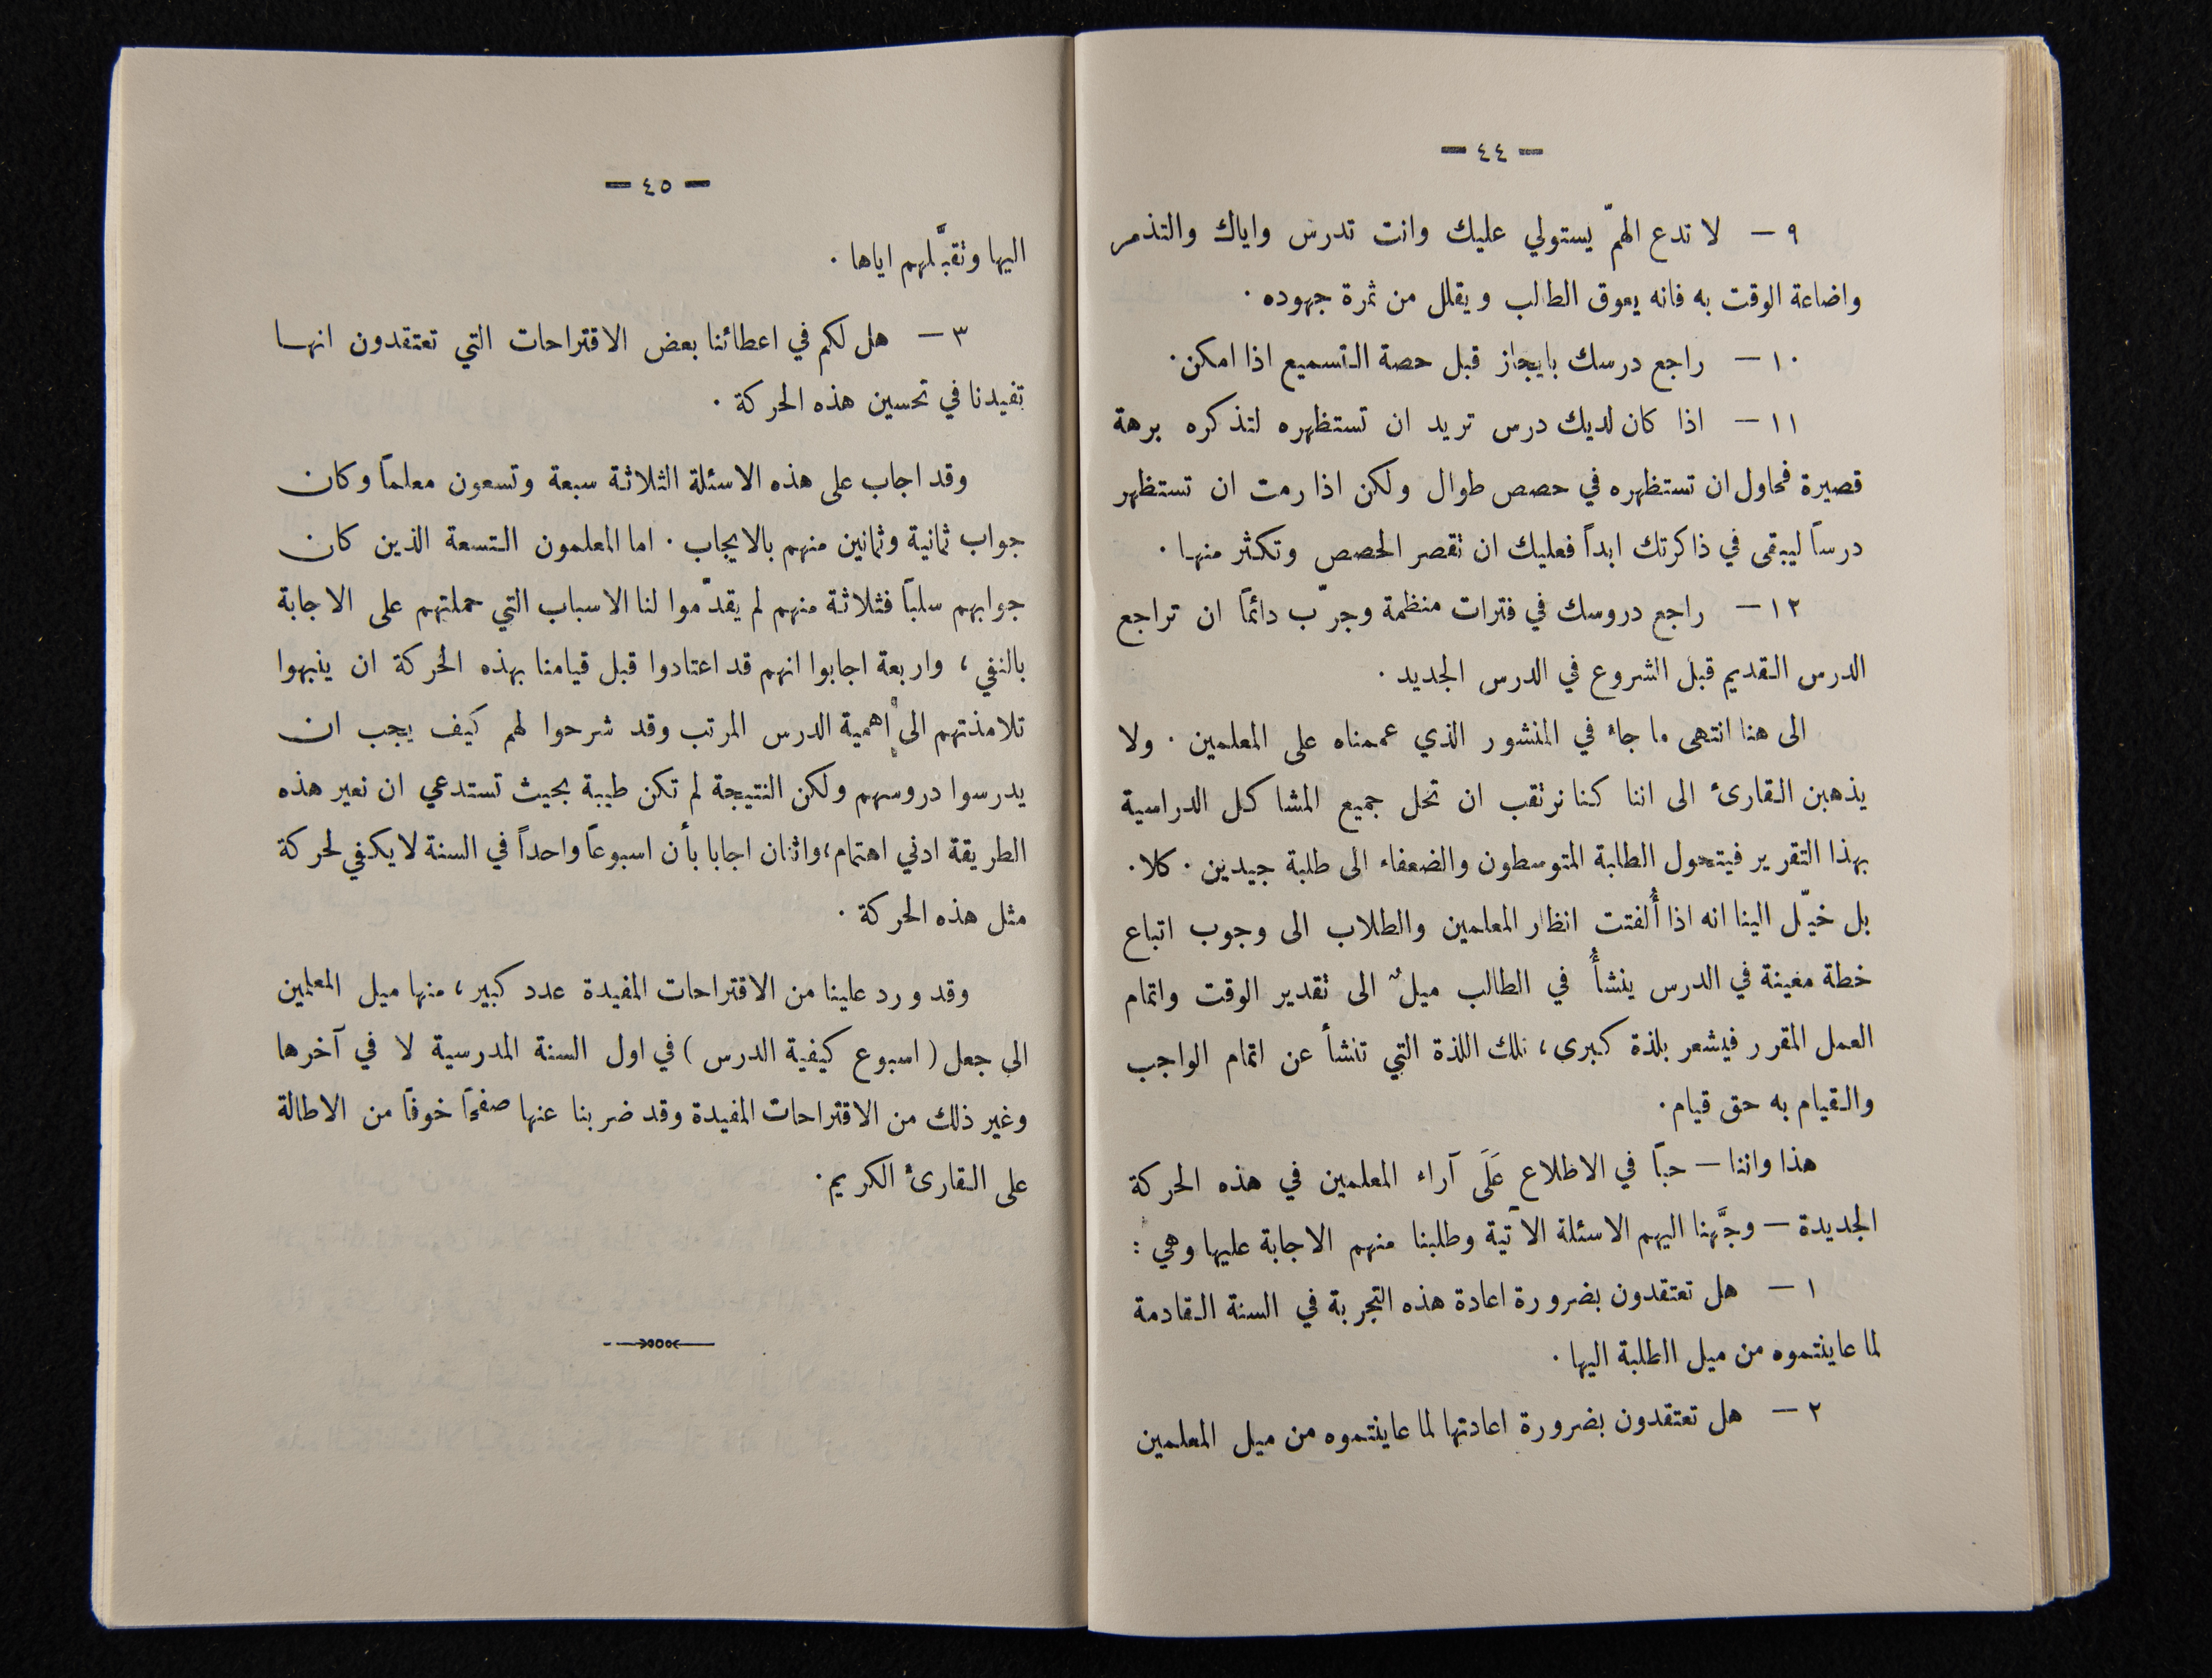 — ٤٤ —
٩ — لا تدع الهمّ يستولي عليك وانت تدرس واياك والتذمر
واضاعة الوقت به فانه يعوق الطالب ويقلل من ثمرة جهوده .
١٠ — راجع درسك بايجاز قبل حصة التسميع اذا امكن.
١١ — اذا كان لديك درس تريد ان تستظهره لتذكره برهة
قصيرة فحاول ان تستظهره في حصص طوال ولكن اذا رمت ان تستظهر
درساً ليبقى في ذاكرتك ابداً فعليك ان تقصر الحصص وتكثر منها .
١٢ — راجع دروسك في فترات منظمة وجرّب دائماً ان تراجع
الدرس القديم قبل الشروع في الدرس الجديد .
الى هنا انتهى ما جاء في المنشور الذي عممناه على المعلمين . ولا
يذهبن القارئ الى اننا كنا نرتقب ان تحل جميع المشاكل الدراسية
بهذا التقرير فيتحول الطلبة المتوسطون والضعفاء الى طلبة جيدين . كلا .
بل خيّل الينا انه اذا أُلفتت انظار المعلمين والطلاب الى وجوب اتباع
خطة معينة في الدرس ينشأُ في الطالب ميلٌ الى تقدير الوقت واتمام
العمل المقرر فيشعر بلذة كبرى، تلك اللذة التي تنشأ عن اتمام الواجب
والقيام به حق قيام.
هذا واننا — حباً في الاطلاع عَلَى آراء المعلمين في هذه الحركة
الجديدة — وجَّهنا اليهم الاسئلة الآتية وطلبنا منهم الاجابة عليها وهي :
١ — هل تعتقدون بضرورة اعادة هذه التجربة في السنة القادمة
لما عاينتموه من ميل الطلبة اليها .
٢ — هل تعتقدون بضرورة اعادتها لما عاينتموه من ميل المعلمين
— ٤٥ —
اليها وتقبَّلهم اياها .
٣ — هل لكم في اعطائنا بعض الاقتراحات التي تعتقدون انها
تفيدنا في تحسين هذه الحركة .
وقد اجاب على هذه الاسئلة الثلاثة سبعة وتسعون معلماً وكان
جواب ثمانية وثمانين منهم بالايجاب . اما المعلمون التسعة الذين كان
جوابهم سلباً فثلاثة منهم لم يقدّموا لنا الاسباب التي حملتهم على الاجابة
بالنفي، واربعة اجابوا انهم قد اعتادوا قبل قيامنا بهذه الحركة ان ينبهوا
تلامذتهم الى اهمية الدرس المرتب وقد شرحوا لهم كيف يجب ان
يدرسوا دروسهم ولكن النتيجة لم تكن طيبة بحيث تستدعي ان نعير هذه
الطريقة ادني اهتمام، واثنان اجابا بأن اسبوعاً واحداً في السنة لا يكفي لحركة
مثل هذه الحركة .
وقد ورد علينا من الاقتراحات المفيدة عدد كبير، منها ميل المعلمين
الى جعل ( اسبوع كيفية الدرس ) في اول السنة المدرسية لا في آخرها
وغير ذلك من الاقتراحات المفيدة وقد ضربنا عنها صفحاً خوفاً من الاطالة
على القارئ الكريم.